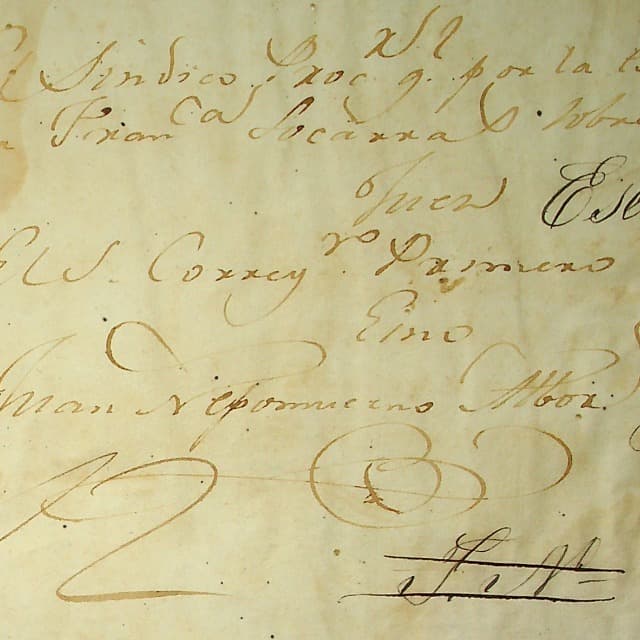 Síndico Proc.r gl. por la
Fran.ca Socarras sobre
Juez Es
El S. Correg.or Primero
Eino
Juan Nepomuceno Albor.
J. N.